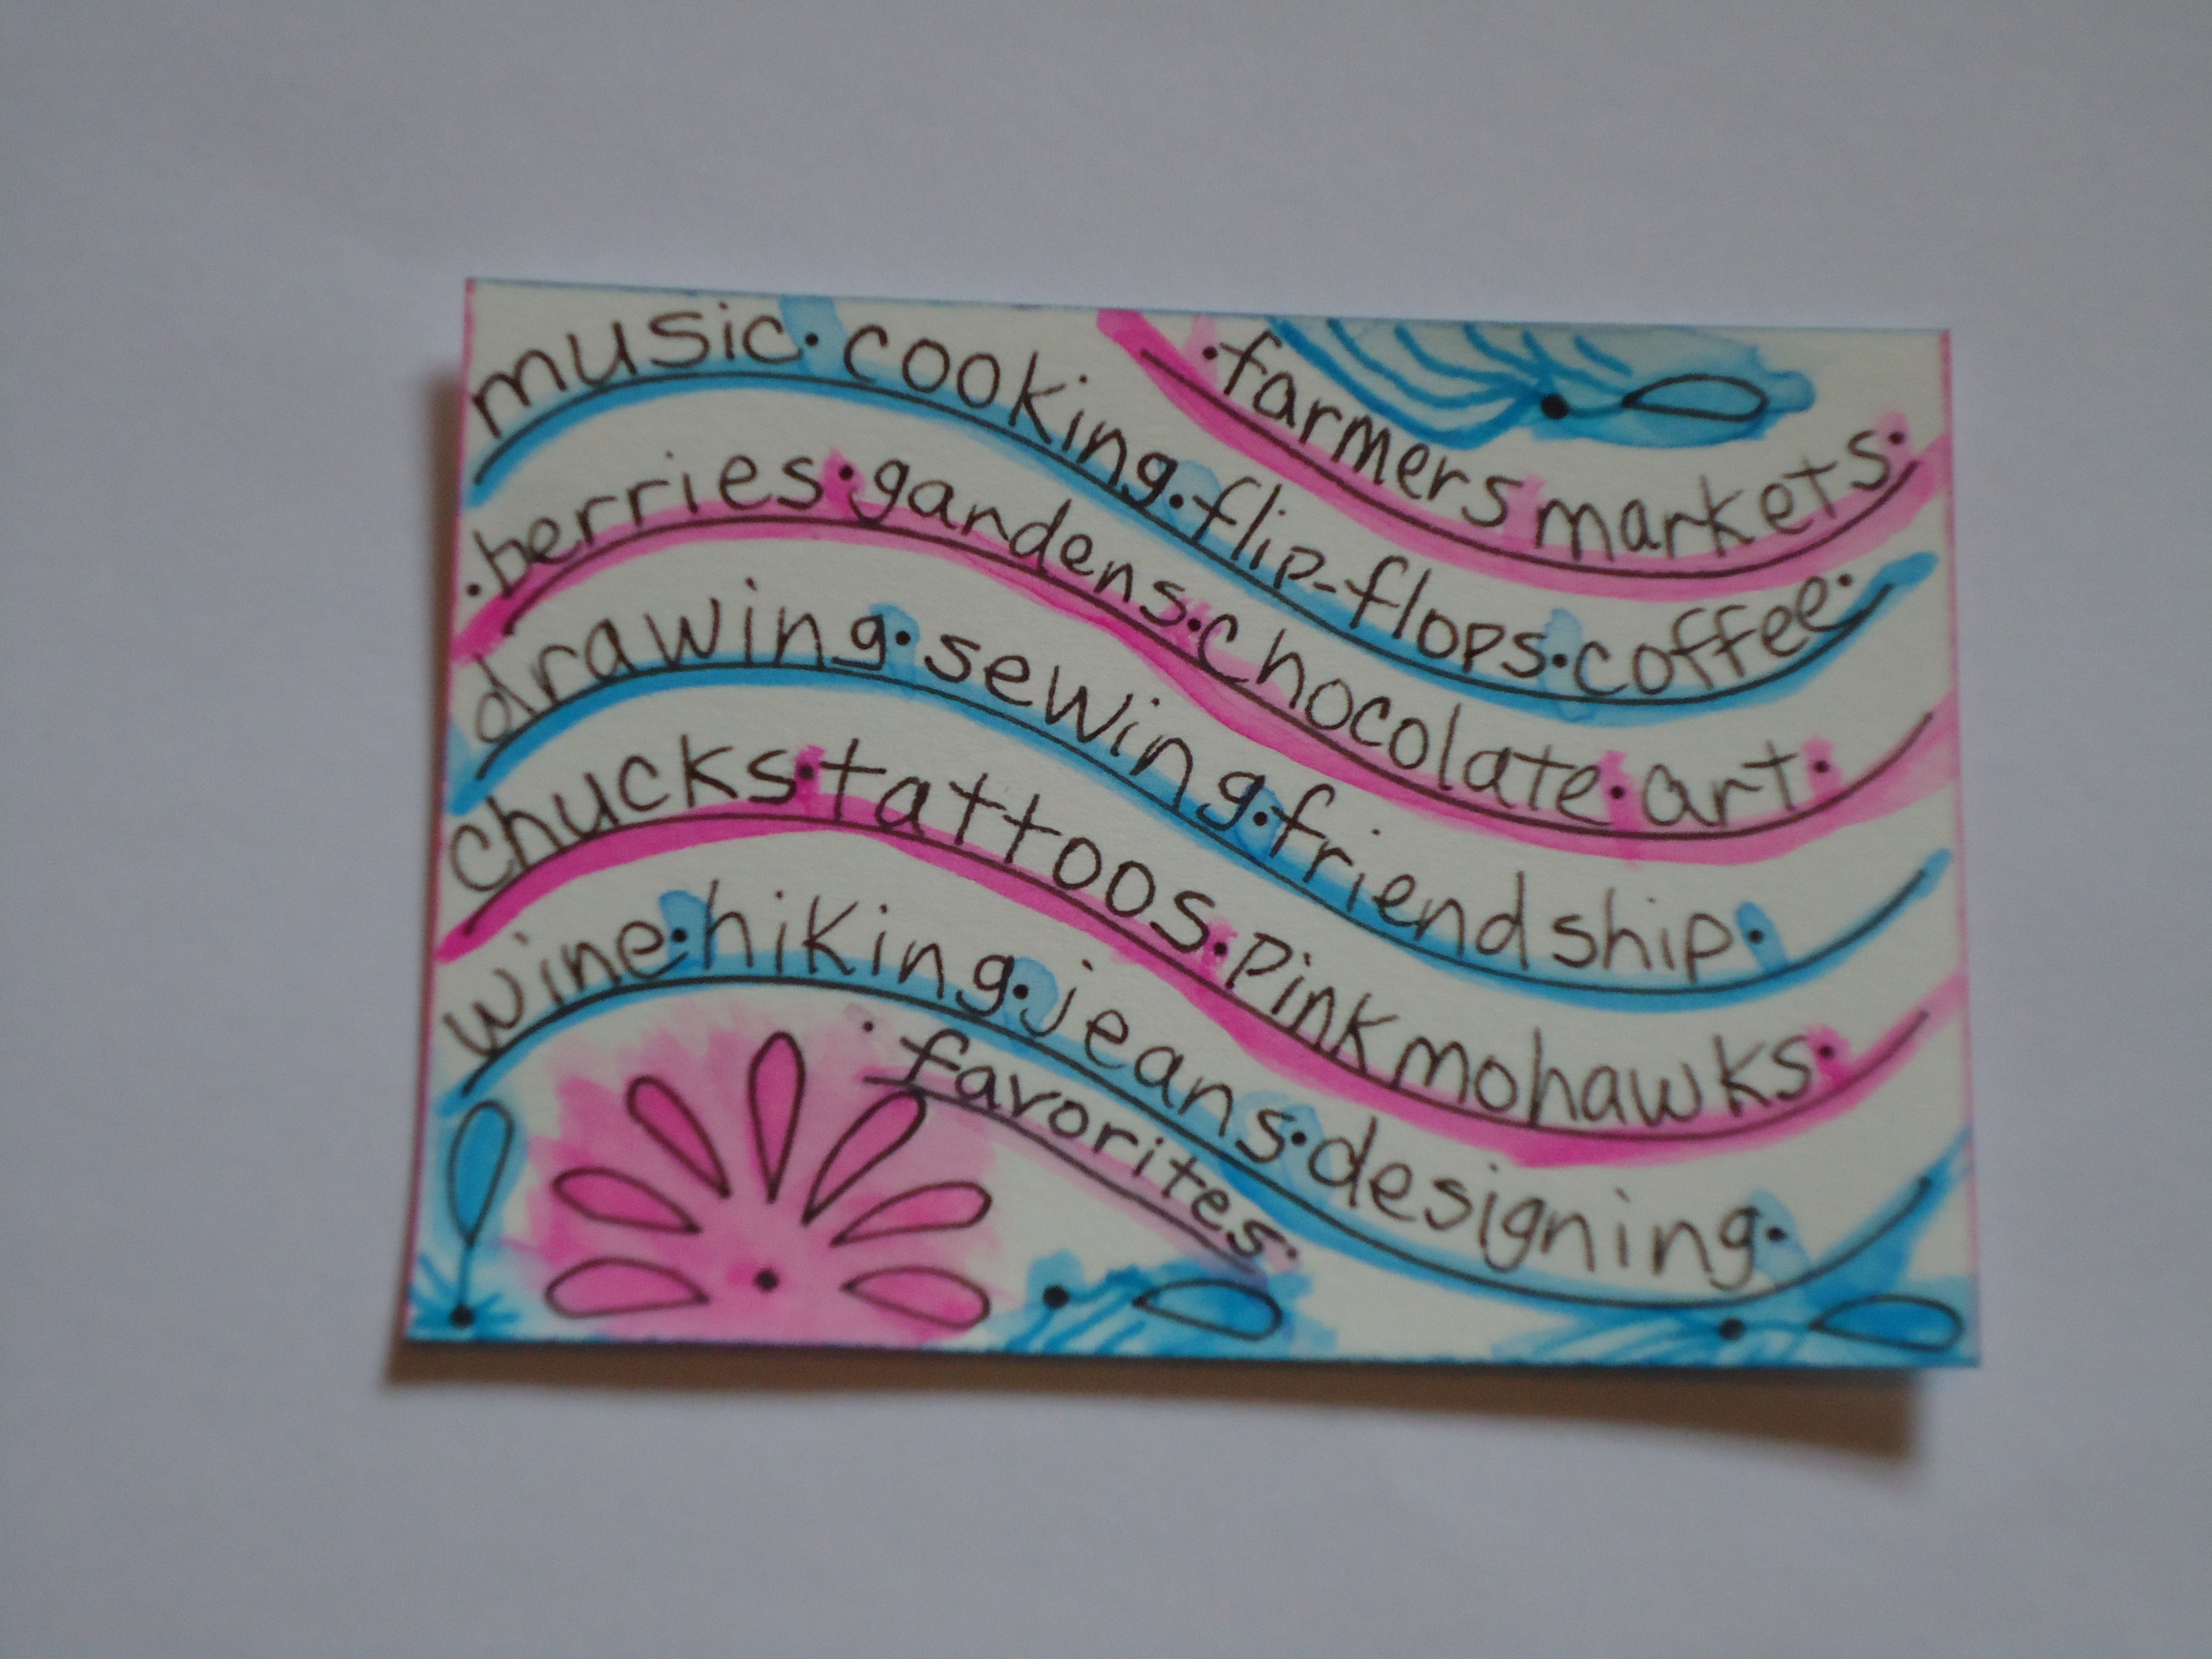 ·farmers markets·
music·cooking·flip-flops·coffee·
·berries·gardens·chocolate·art·
drawing·sewing·friendship·
chucks·tattoos·pink mohawks·
wine·hiking·jeans·designing·
·favorites·